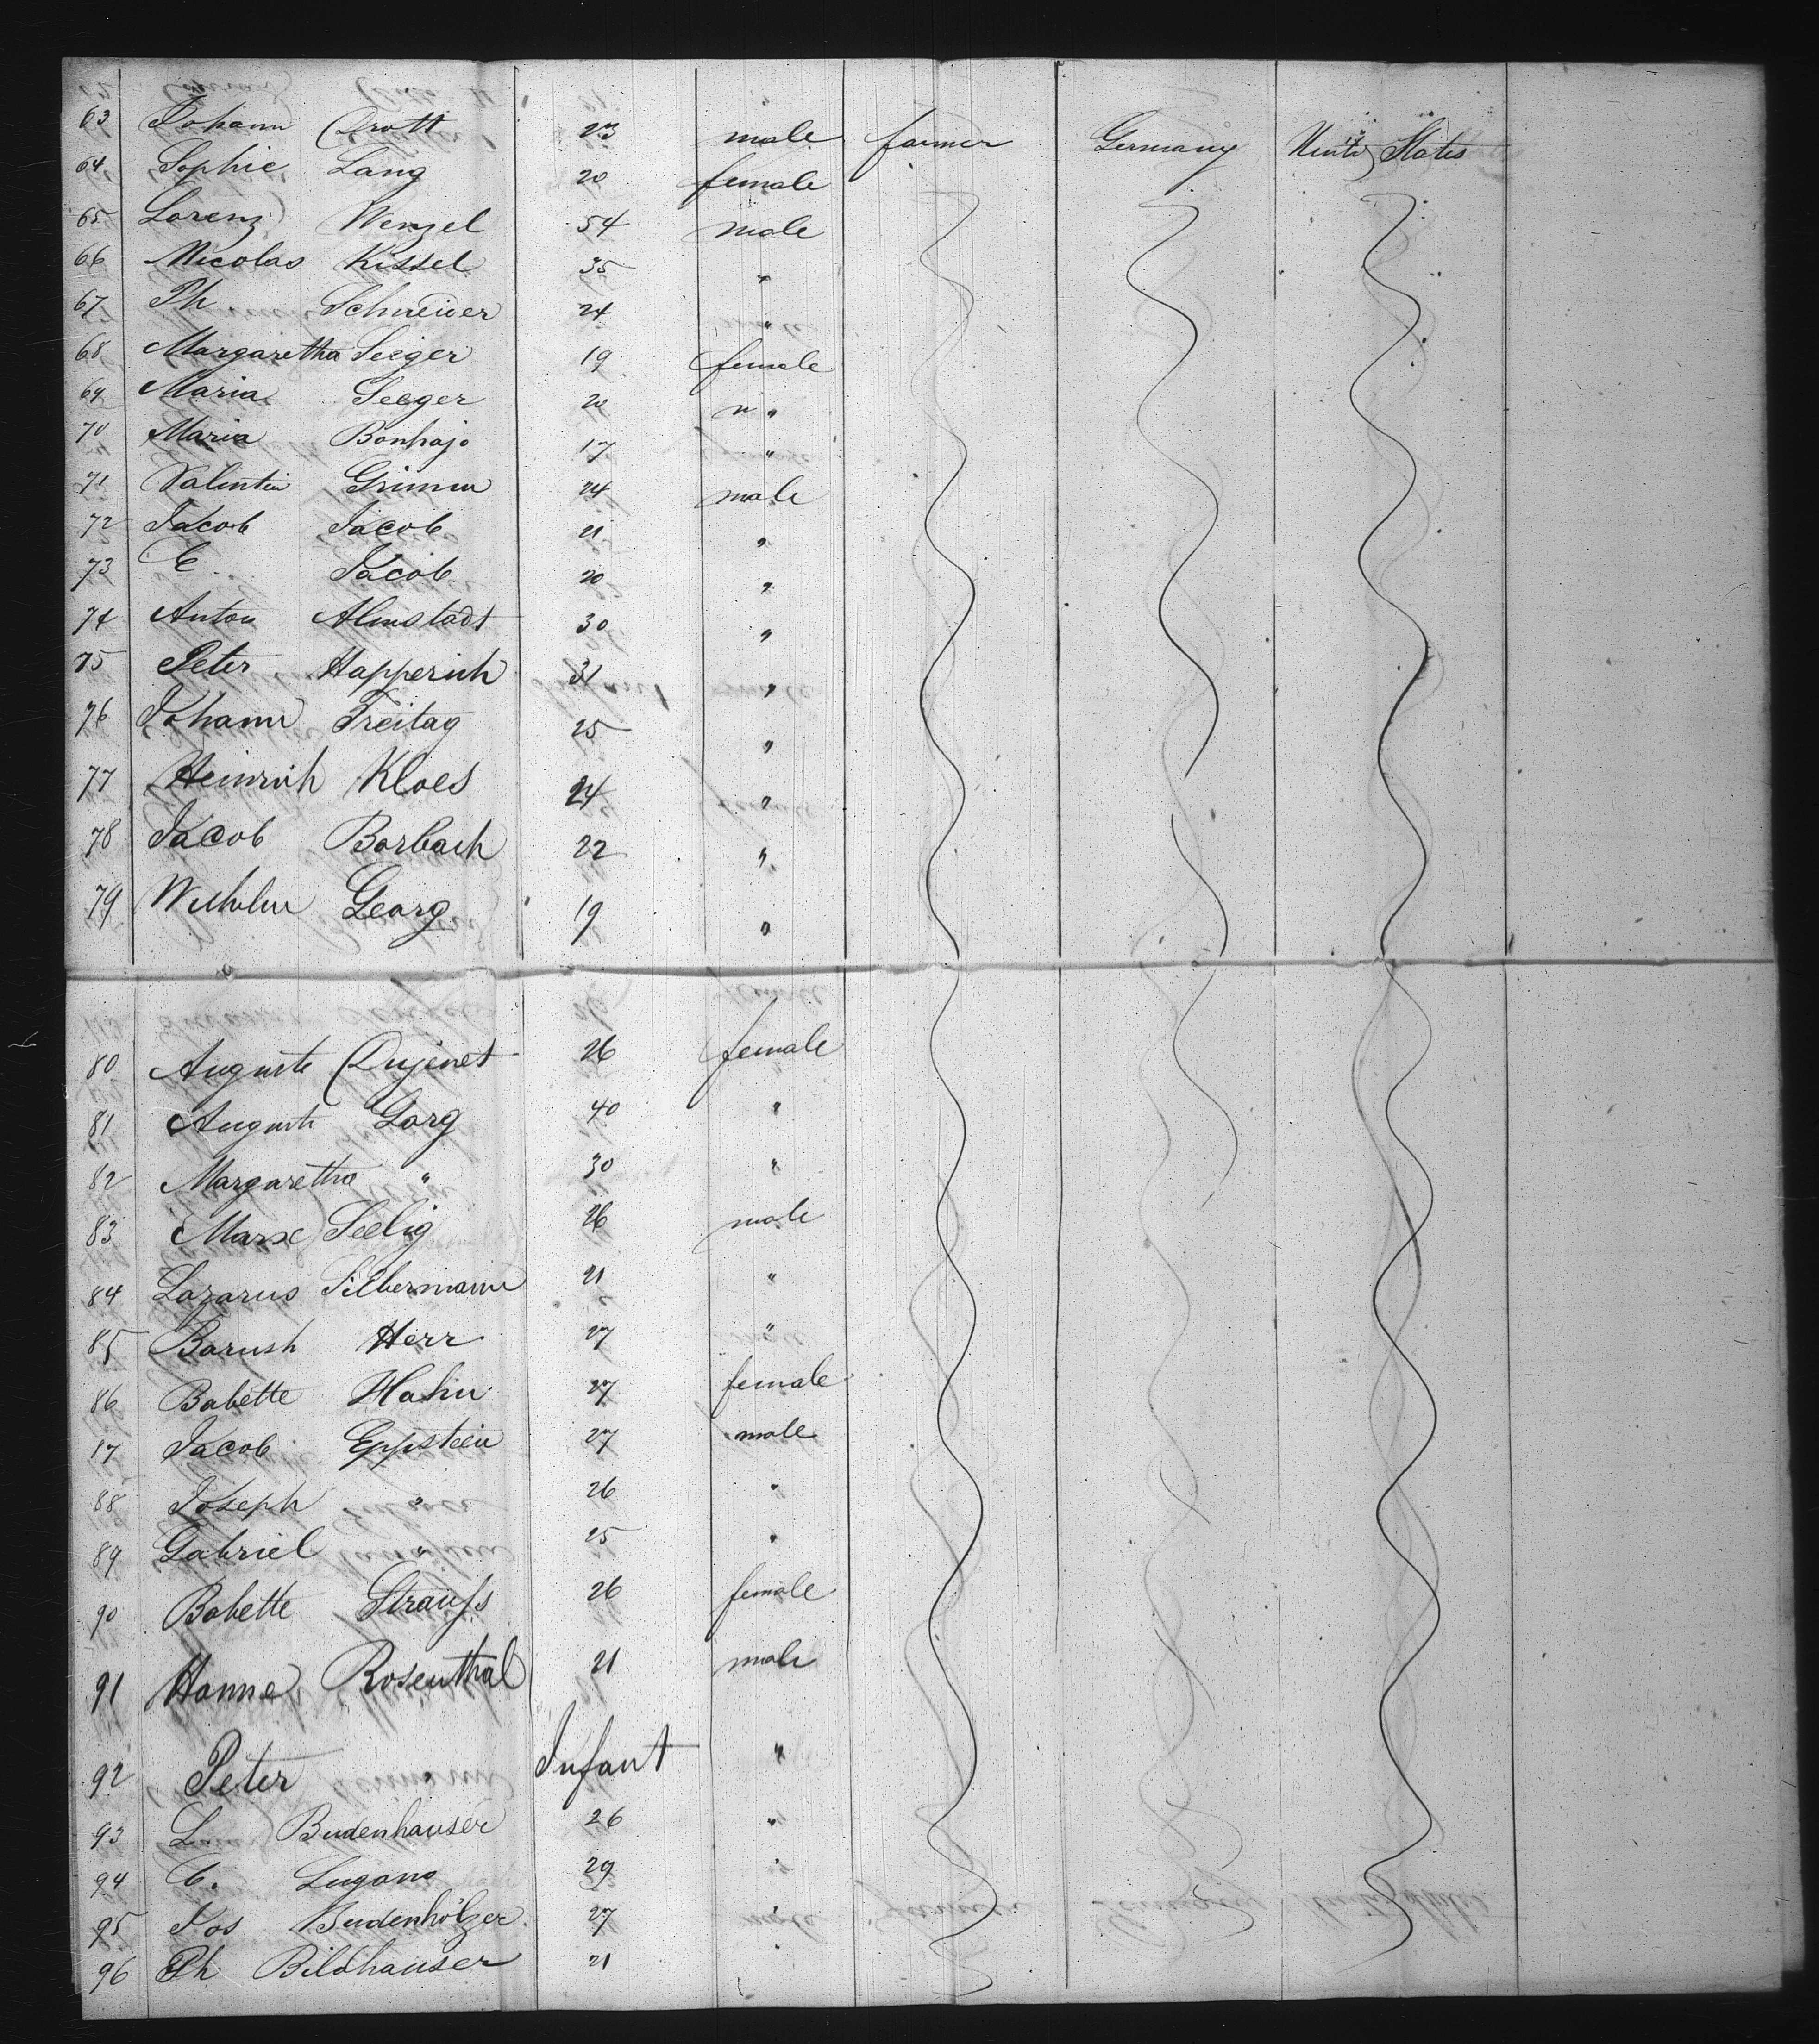 63 Johann Drott 23 male farmer Germany United States
64 Sophie Lang 20 female
65 Lorenz Wenzel 54 male
66 Nicolas Kissel 35 "
67 Ph Schneider 24 "
68 Margaretha Seeger 19 female
69 Maria Seeger 20 " "
70 Maria Bonhajo 17 "
71 Valentin Grimm 24 male
72 Jacob Jacob 21 "
73 C. Jacob 20 "
74 Anton Almstadt 30 "
75 Peter Happerich 31 "
76 Johann Freitag 25 "
77 Heinrich Kloes 24 "
78 Jacob Borbach 22 "
79 Wilhelm Georg 19 "
80 Auguste Dujenet 26 female
81 Auguste Gorg 40 "
82 Margaretha " 30 "
83 Marx Seelig 26 male
84 Lazarus Silbermann 21 "
85 Barush Herr 27 "
86 Babette Hahn 27 female
87 Jacob Eppstein 27 male
88 Joseph " 26 "
89 Gabriel " 25 "
90 Babette Strauss 26 female
91 Hanne Rosenthal 21 male
92 Peter " Infant "
93 L. Budenhauser 26 "
94 C. Lugano 29 "
95 Jos Budenhölzer 27 "
96 Ph Bildhauser 21 "